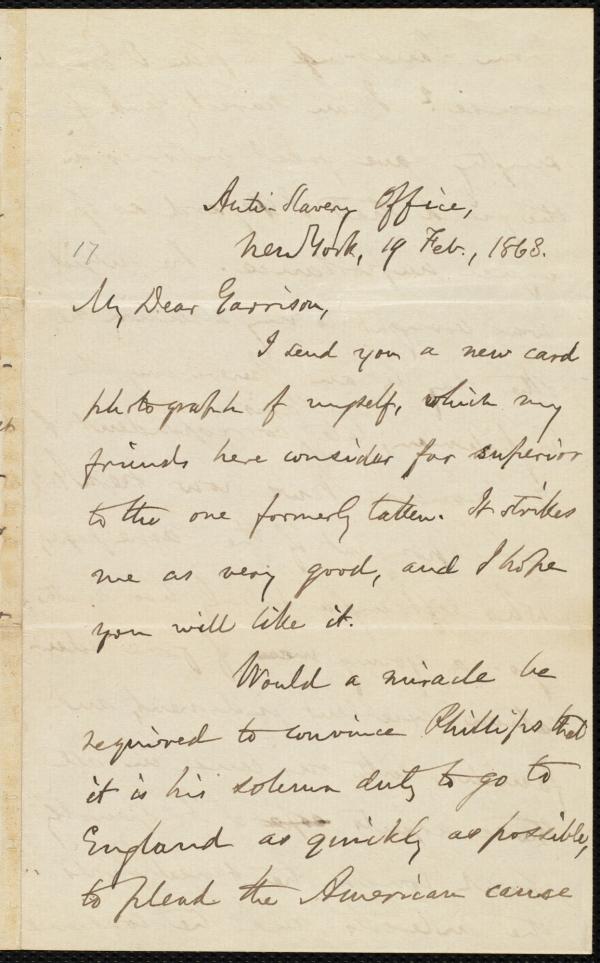 Anti-Slavery Office,
New York, 19 Feb., 1863.
17
My Dear Garrison,
I send you a new card
photograph of myself, which my
friends here consider far superior
to the one formerly taken. It strikes
me as very good, and I hope
you will like it.
Would a miracle be
required to convince Phillips that
it is his solemn duty to go to
England as quickly as possible,
to plead the American cause